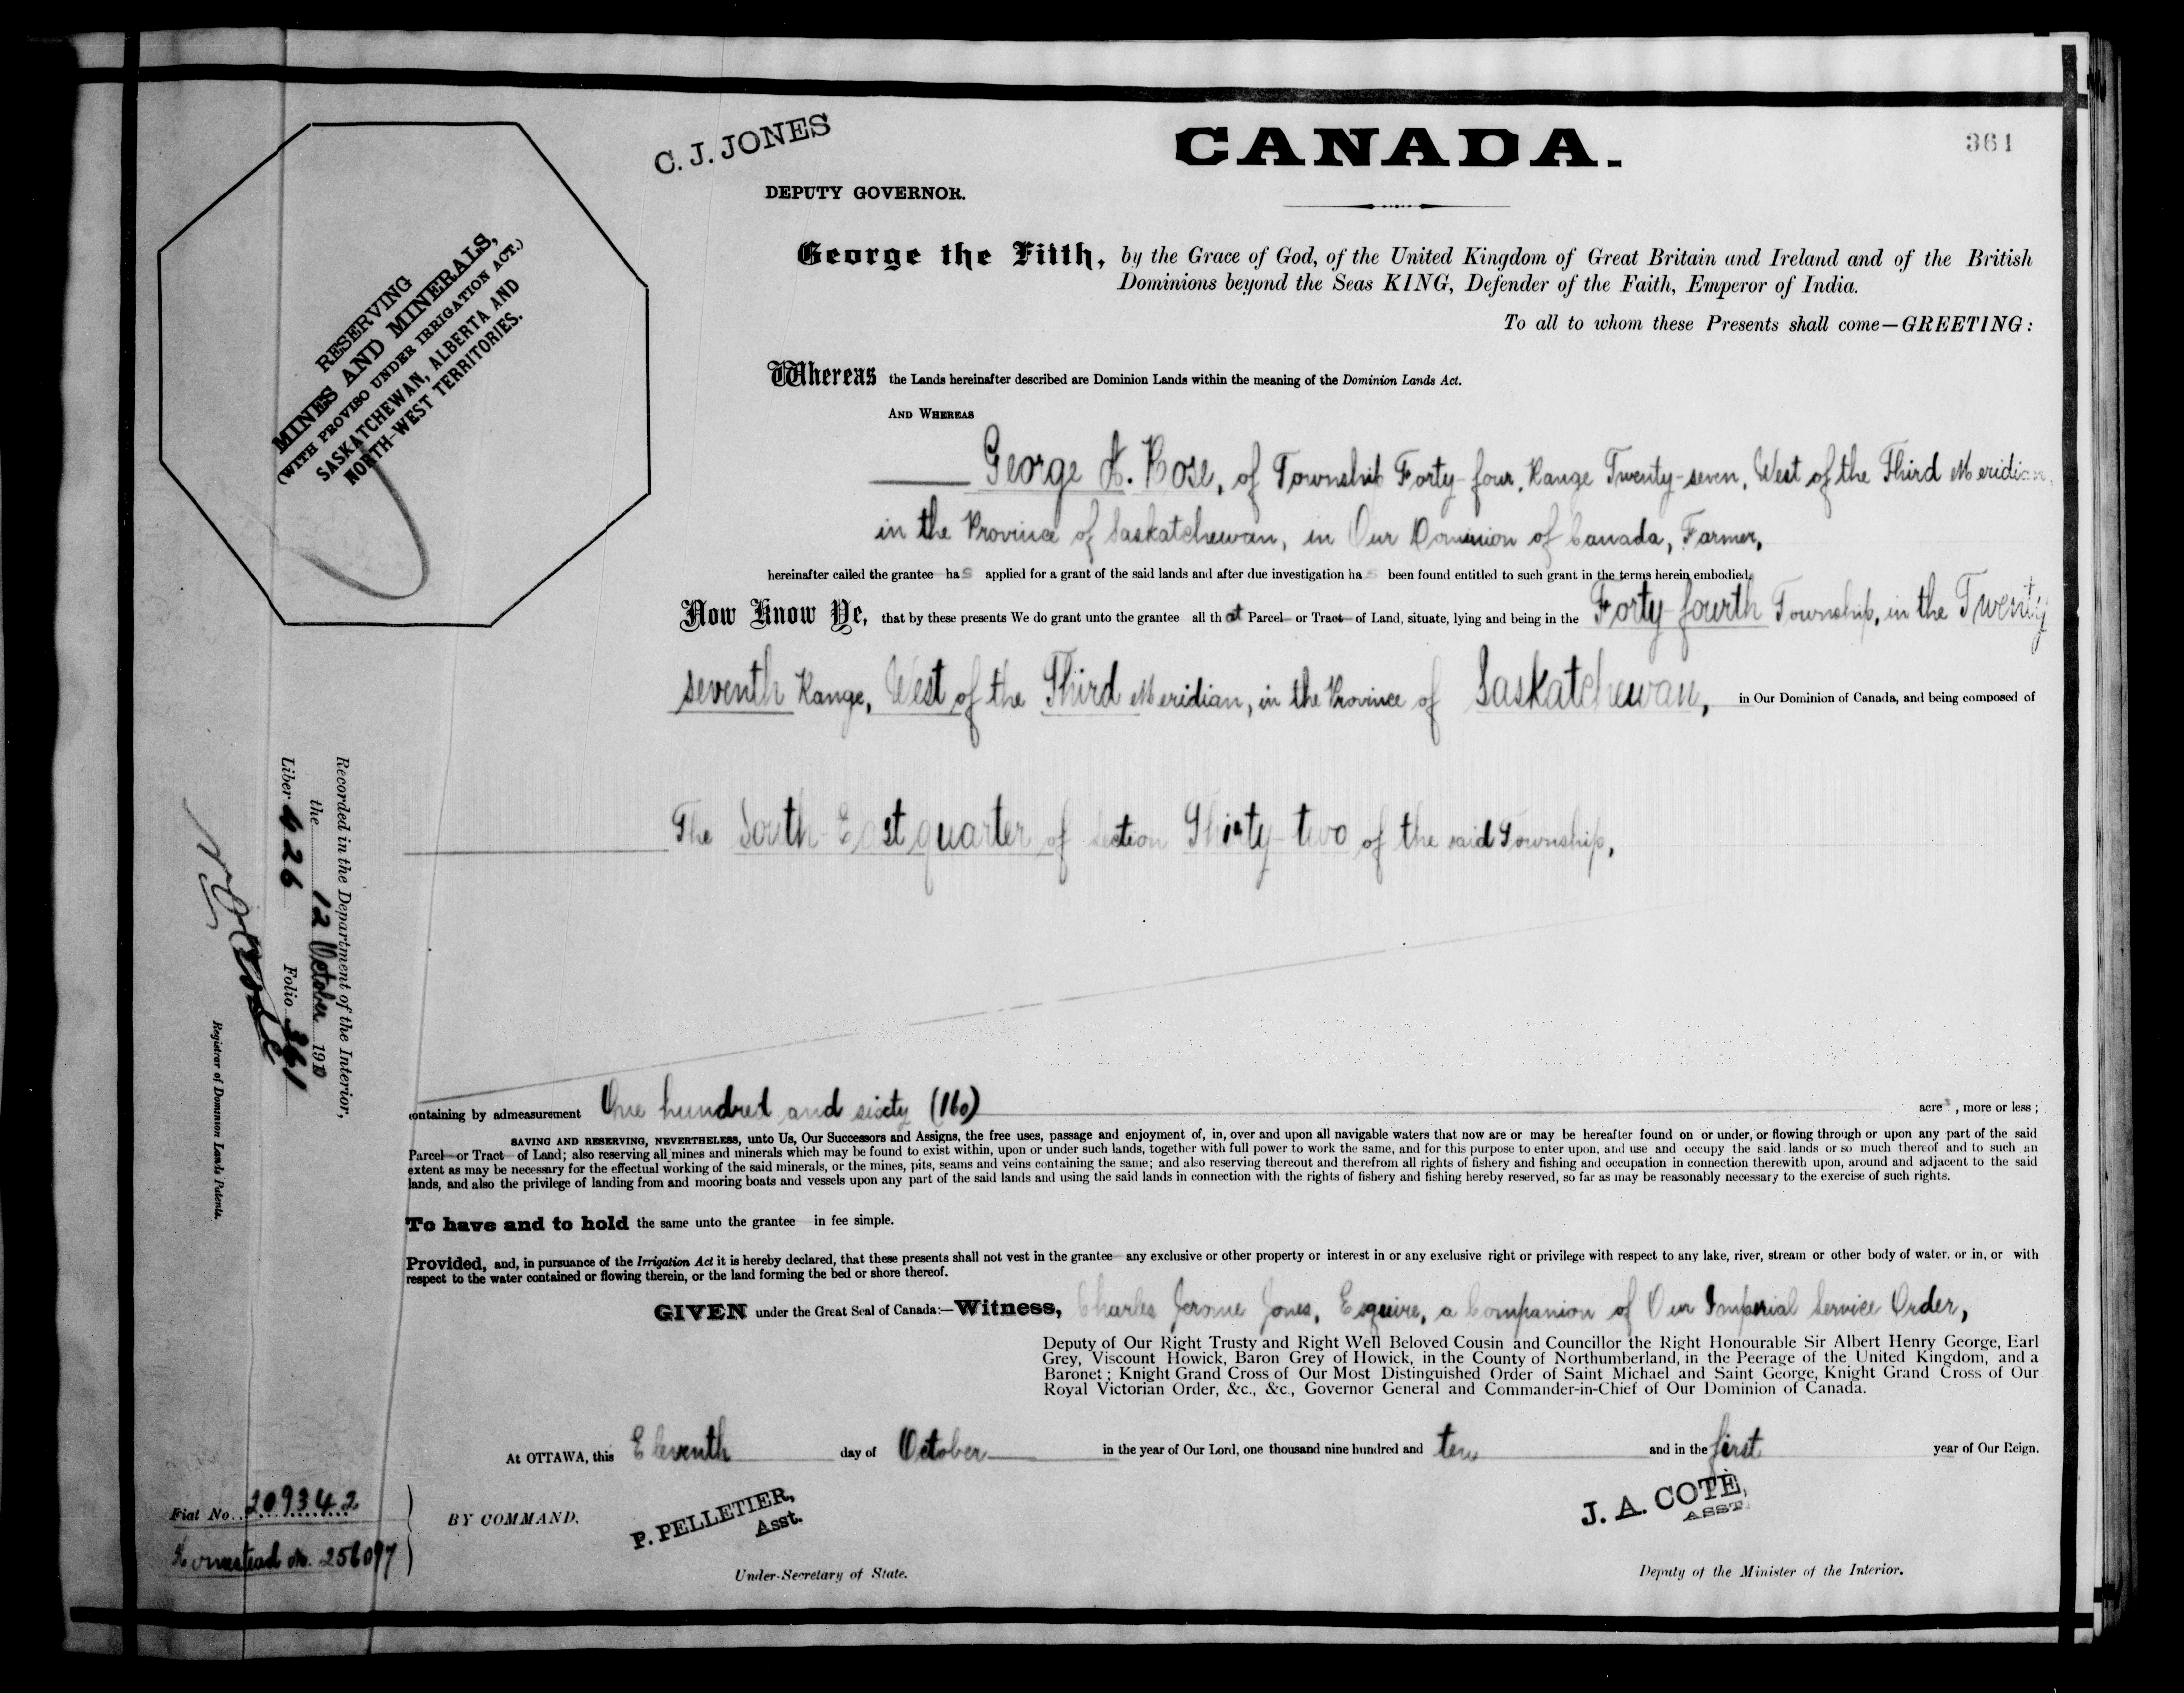 361
C. J. JONES
CANADA.
DEPUTY GOVERNOR.
George the Fifth, by the Grace of God, of the United Kingdom of Great Britain and Ireland and of the British
Dominions beyond the Seas KING, Defender of the Faith, Emperor of India.
To all to whom these Presents shall come—GREETING:
RESERVING
MINES AND MINERALS,
(WITH PROVISO UNDER IRRIGATION ACT.)
SASKATCHEWAN, ALBERTA AND
NORTH-WEST TERRITORIES.
Whereas the Lands hereinafter described are Dominion Lands within the meaning of the Dominion Lands Act.
AND WHEREAS
George A. Rose, of Township Forty-four, Range Twenty-seven, West of the Third Meridian,
in the Province of Saskatchewan, in Our Dominion of Canada, Farmer,
hereinafter called the grantee has applied for a grant of the said lands and after due investigation has been found entitled to such grant in the terms herein embodied.
Now Know Ye, that by these presents We do grant unto the grantee all that Parcel or Tract of Land, situate, lying and being in the Forty-fourth Township, in the Twenty
seventh Range, West of the Third Meridian, in the Province of Saskatchewan, in Our Dominion of Canada, and being composed of
The South-East quarter of Section Thirty-two of the said Township,
containing by admeasurement One hundred and sixty (160) acres, more or less;
SAVING AND RESERVING, NEVERTHELESS, unto Us, Our Successors and Assigns, the free uses, passage and enjoyment of, in, over and upon all navigable waters that now are or may be hereafter found on or under, or flowing through or upon any part of the said
Parcel or Tract of Land; also reserving all mines and minerals which may be found to exist within, upon or under such lands, together with full power to work the same, and for this purpose to enter upon, and use and occupy the said lands or so much thereof and to such an
extent as may be necessary for the effectual working of the said minerals, or the mines, pits, seams and veins containing the same; and also reserving thereout and therefrom all rights of fishery and fishing and occupation in connection therewith upon, around and adjacent to the said
lands, and also the privilege of landing from and mooring boats and vessels upon any part of the said lands and using the said lands in connection with the rights of fishery and fishing hereby reserved, so far as may be reasonably necessary to the exercise of such rights.
To have and to hold the same unto the grantee in fee simple.
Provided, and, in pursuance of the Irrigation Act it is hereby declared, that these presents shall not vest in the grantee any exclusive or other property or interest in or any exclusive right or privilege with respect to any lake, river, stream or other body of water, or in, or with
respect to the water contained or flowing therein, or the land forming the bed or shore thereof.
GIVEN under the Great Seal of Canada:—Witness, Charles Jerome Jones, Esquire, a Companion of Our Imperial Service Order,
Deputy of Our Right Trusty and Right Well Beloved Cousin and Councillor the Right Honourable Sir Albert Henry George, Earl
Grey, Viscount Howick, Baron Grey of Howick, in the County of Northumberland, in the Peerage of the United Kingdom, and a
Baronet; Knight Grand Cross of Our Most Distinguished Order of Saint Michael and Saint George, Knight Grand Cross of Our
Royal Victorian Order, &c., &c., Governor General and Commander-in-Chief of Our Dominion of Canada.
At OTTAWA, this Eleventh day of October in the year of Our Lord, one thousand nine hundred and ten and in the first year of Our Reign.
BY COMMAND.
P. PELLETIER,
Asst.
Under-Secretary of State.
J. A. COTÉ,
ASST.
Deputy of the Minister of the Interior.
Recorded in the Department of the Interior,
the 12 October 1910
Liber 426 Folio 361
Registrar of Dominion Lands Patents.
Fiat No. 209342
Homestead No. 256097